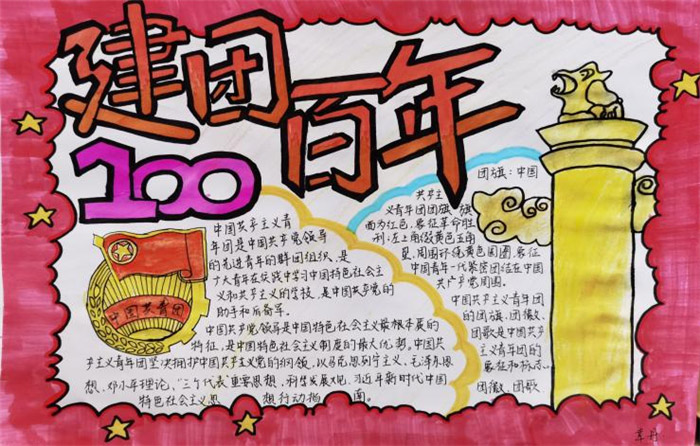 建团百年
100
中国共青团
中国共产主义青
年团是中国共产党领导
的先进青年的群团组织，是
广大青年在实践中学习中国特色社会主
义和共产主义的学校，是中国共产党的
助手和后备军。
中国共产党领导是中国特色社会主义最根本展的
特征，是中国特色社会主义制度的最大优势。中国共
产主义青年团坚决拥护中国共产主义党的纲领，以马克思列宁主义、毛泽东思
想、邓小平理论、"三个代表"重要思想、科学发展观、习近平新时代中国
特色社会主义思 想行动指 南。
团旗：中国
共产主
义青年团团旗 旗
面为红色，象征革命胜
利；左上角缀黄色五角
星，周围环绕黄色圆圈，象征
中国青年一代紧密团结在中国
共产党周围。
中国共产主义青年团
的团旗、团徽、
团歌是中国共产
主义青年团的
象征和标志。
团徽、团歌